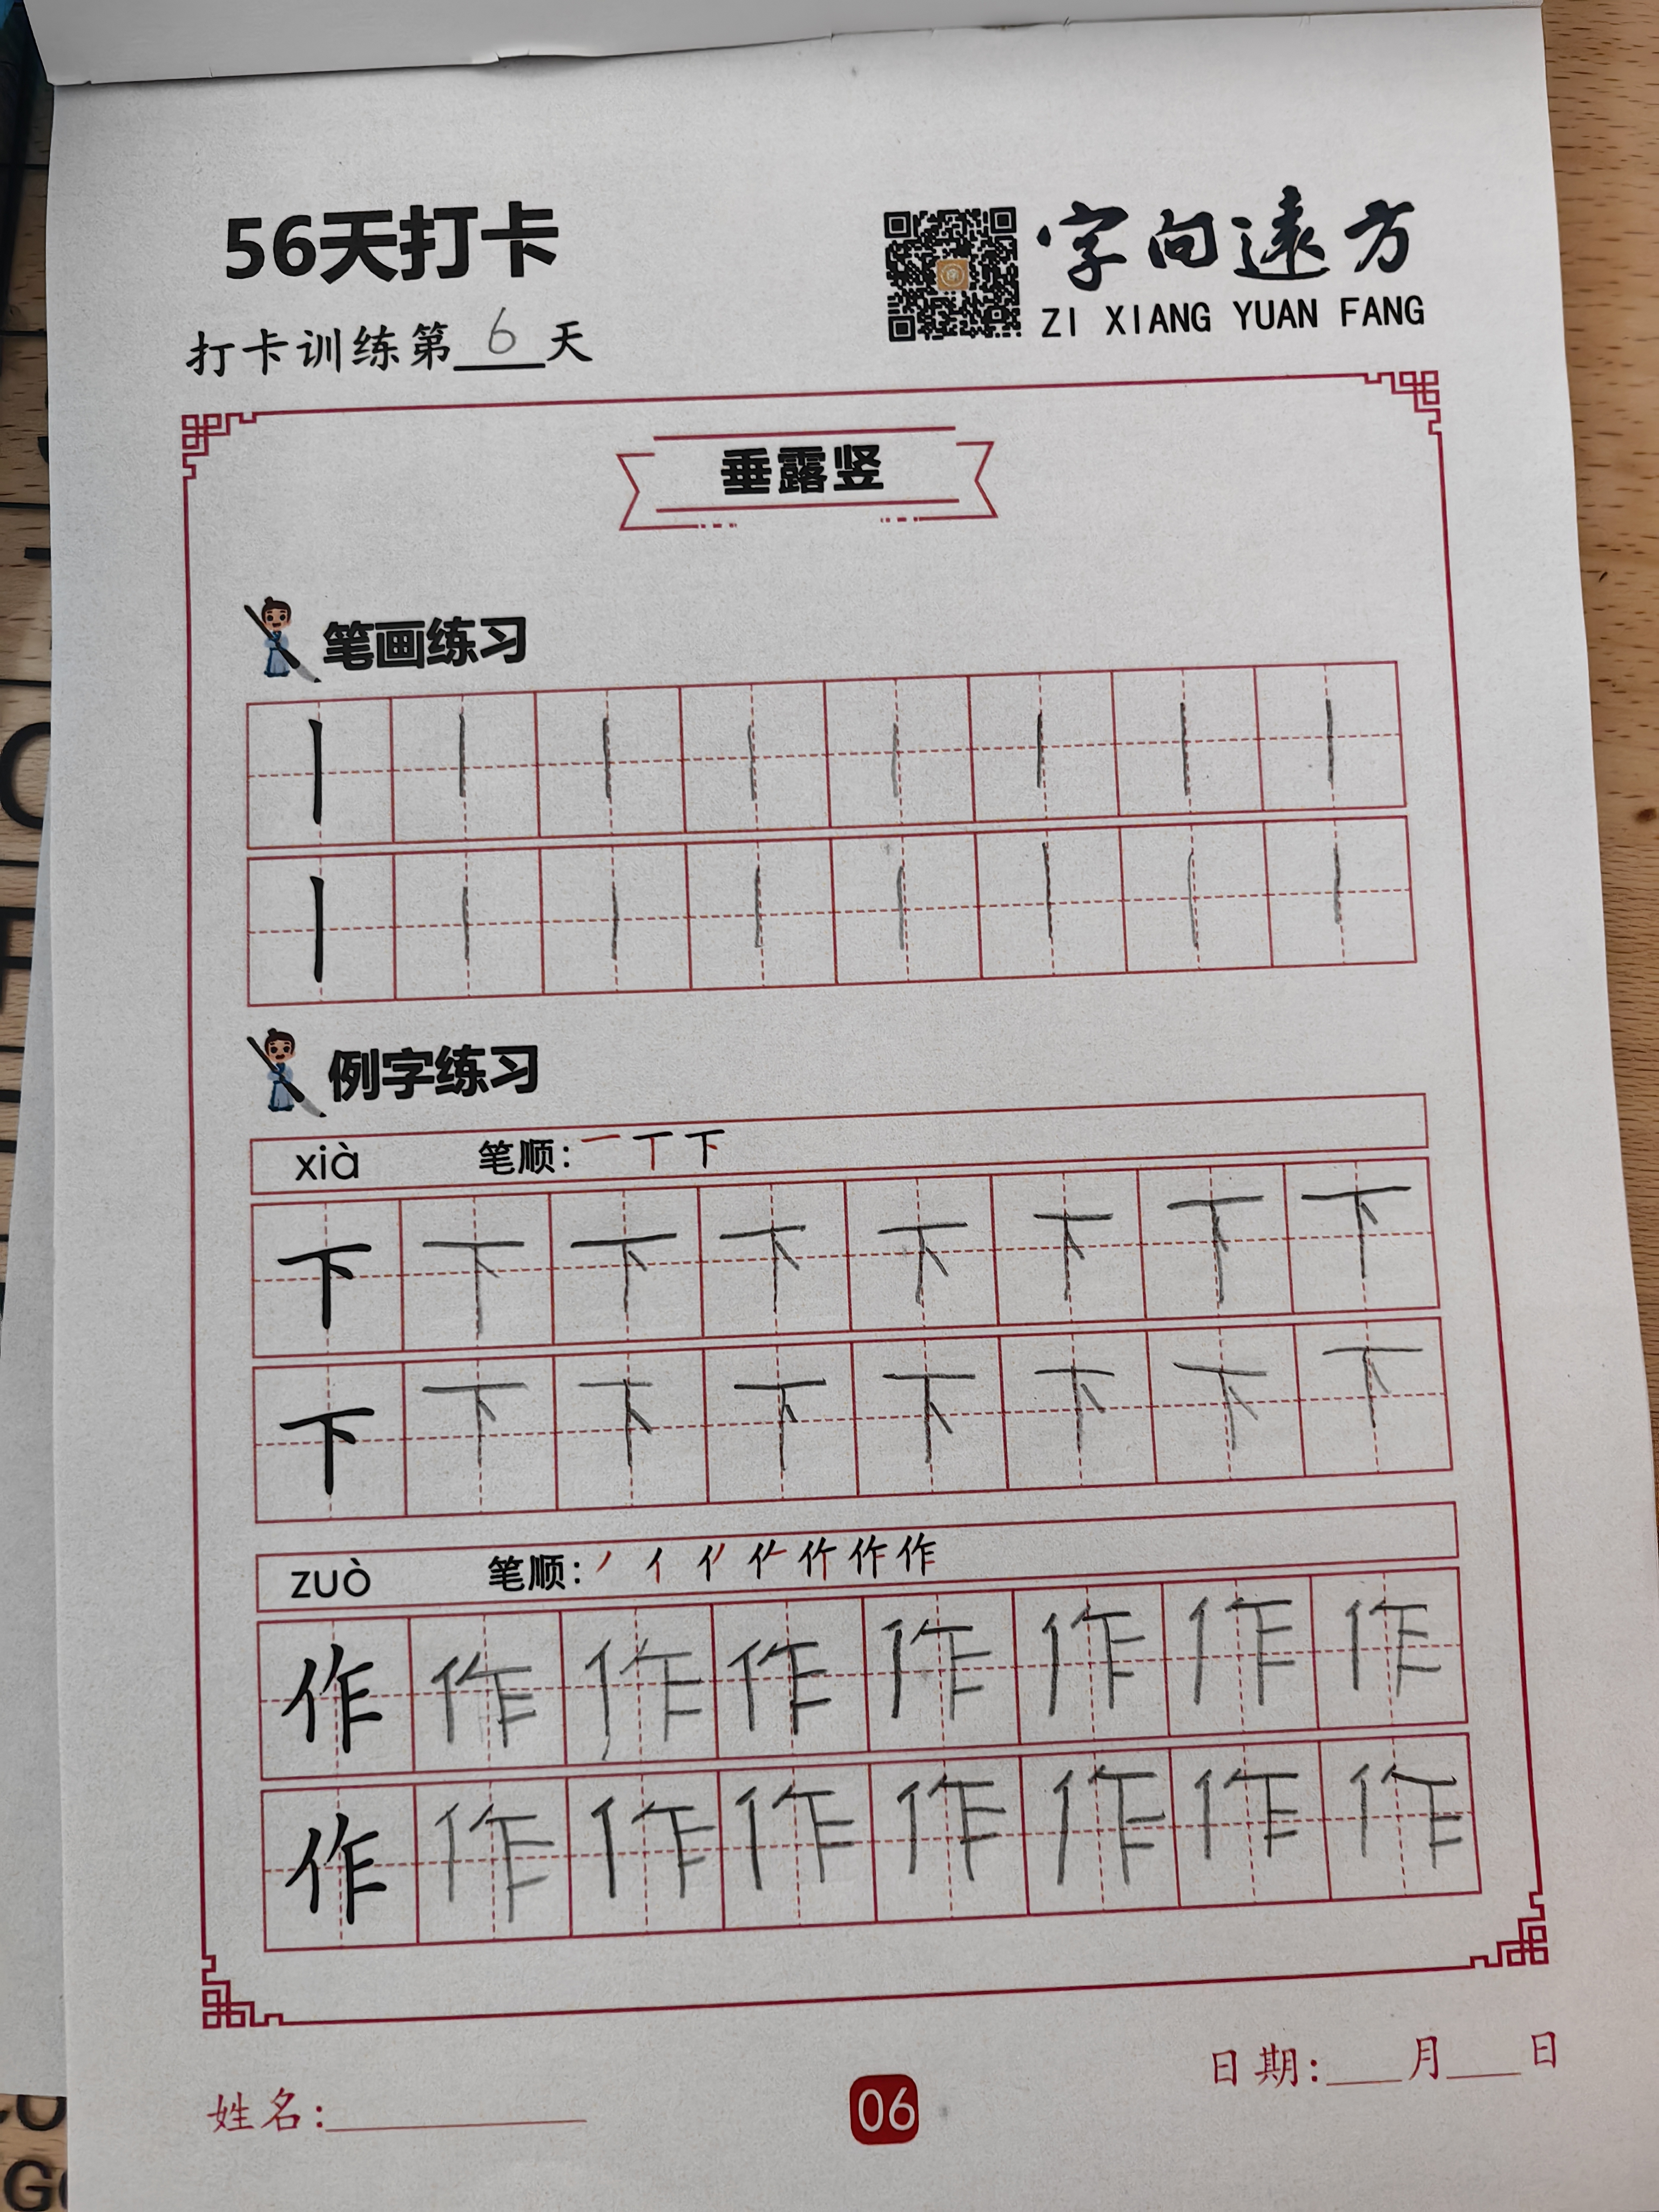 56天打卡
字向遠方
ZI XIANG YUAN FANG
打卡训练第6天
垂露竖
笔画练习
丨丨丨丨丨丨丨丨
丨丨丨丨丨丨丨丨
例字练习
xià 笔顺: 一 丅 下
下下下下下下下下
下下下下下下下下
zuò 笔顺: 丿 亻 作 作
作作作作作作作作
作作作作作作作作
姓名:
06
日期: 月 日